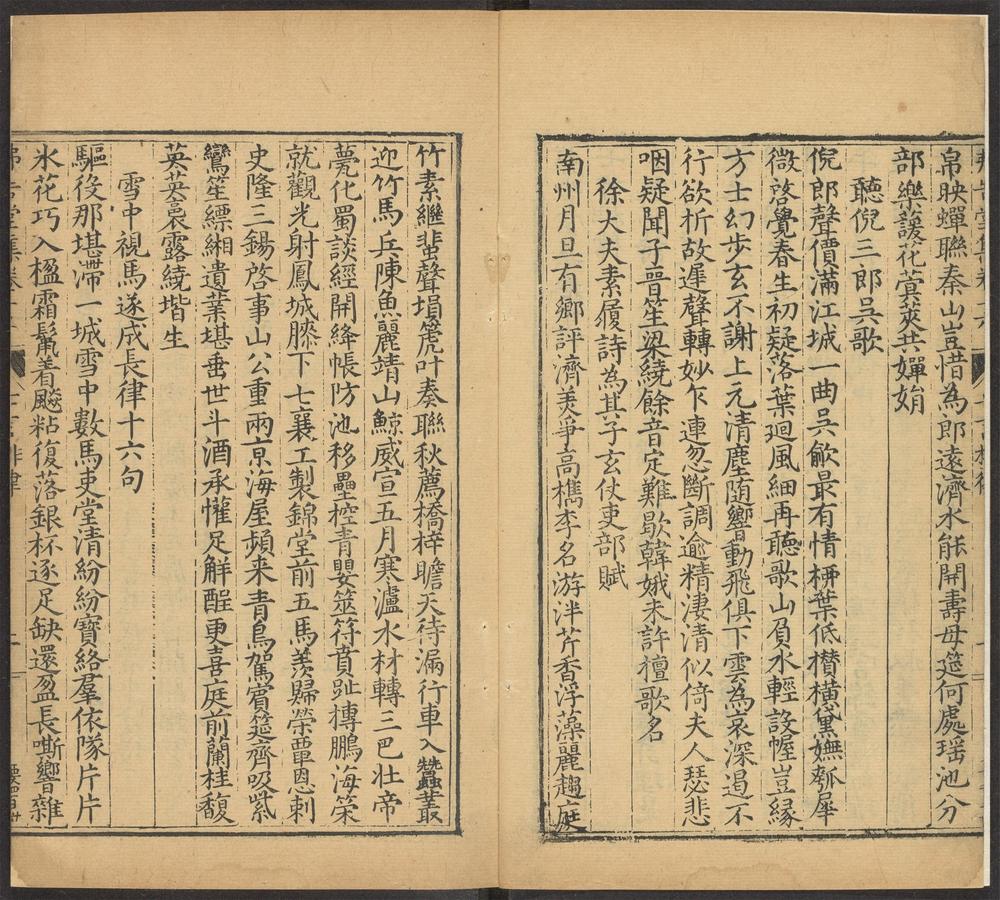 帛映蟬聯秦山豈惜為郎遠濟水能開壽母筵何處瑶池分
部樂護花蓂莢共嬋娟
聽倪三郎吳歌
倪郎聲價滿江城一曲吳歈最有情栁葉低攅横黛嫵瓠犀
微啓覺春生初疑落葉廻風細再聽歌山負水輕設幄豈緣
方士幻歩玄不謝上元清塵随響動飛俱下雲為哀深遏不
行欲析故遲聲轉妙乍連忽斷調逾精凄清似倚夫人瑟悲
咽疑聞子晋笙梁繞餘音定難歇韓娥未許擅歌名
徐大夫素履詩為其子玄仗吏部賦
南州月旦有鄉評濟羙爭髙檇李名游泮芹香浮藻麗趨庭
竹素繼蜚聲塤箎叶奏聯秋薦橋梓瞻天待漏行車入蠶叢
迎竹馬兵陳魚麗靖山鯨威宣五月寒瀘水材轉三巴壮帝
甍化蜀談經開絳帳防池移壘控青嬰筮符賁趾摶鵬海榮
就觀光射鳳城膝下七襄工製錦堂前五馬羡歸榮覃恩剌
史隆三錫啓事山公重兩京海屋頻来青鳥駕賓筵齊吸紫
鸞笙縹緗遺業堪垂世斗酒承懽足觧酲更喜庭前蘭桂馥
英英裛露繞堦生
雪中視馬遂成長律十六句
驅役那堪滯一城雪中數馬吏堂清紛紛寶絡羣依隊片片
氷花巧入楹霜鬣着飈粘復落銀杯逐足缺還盈長嘶響雜